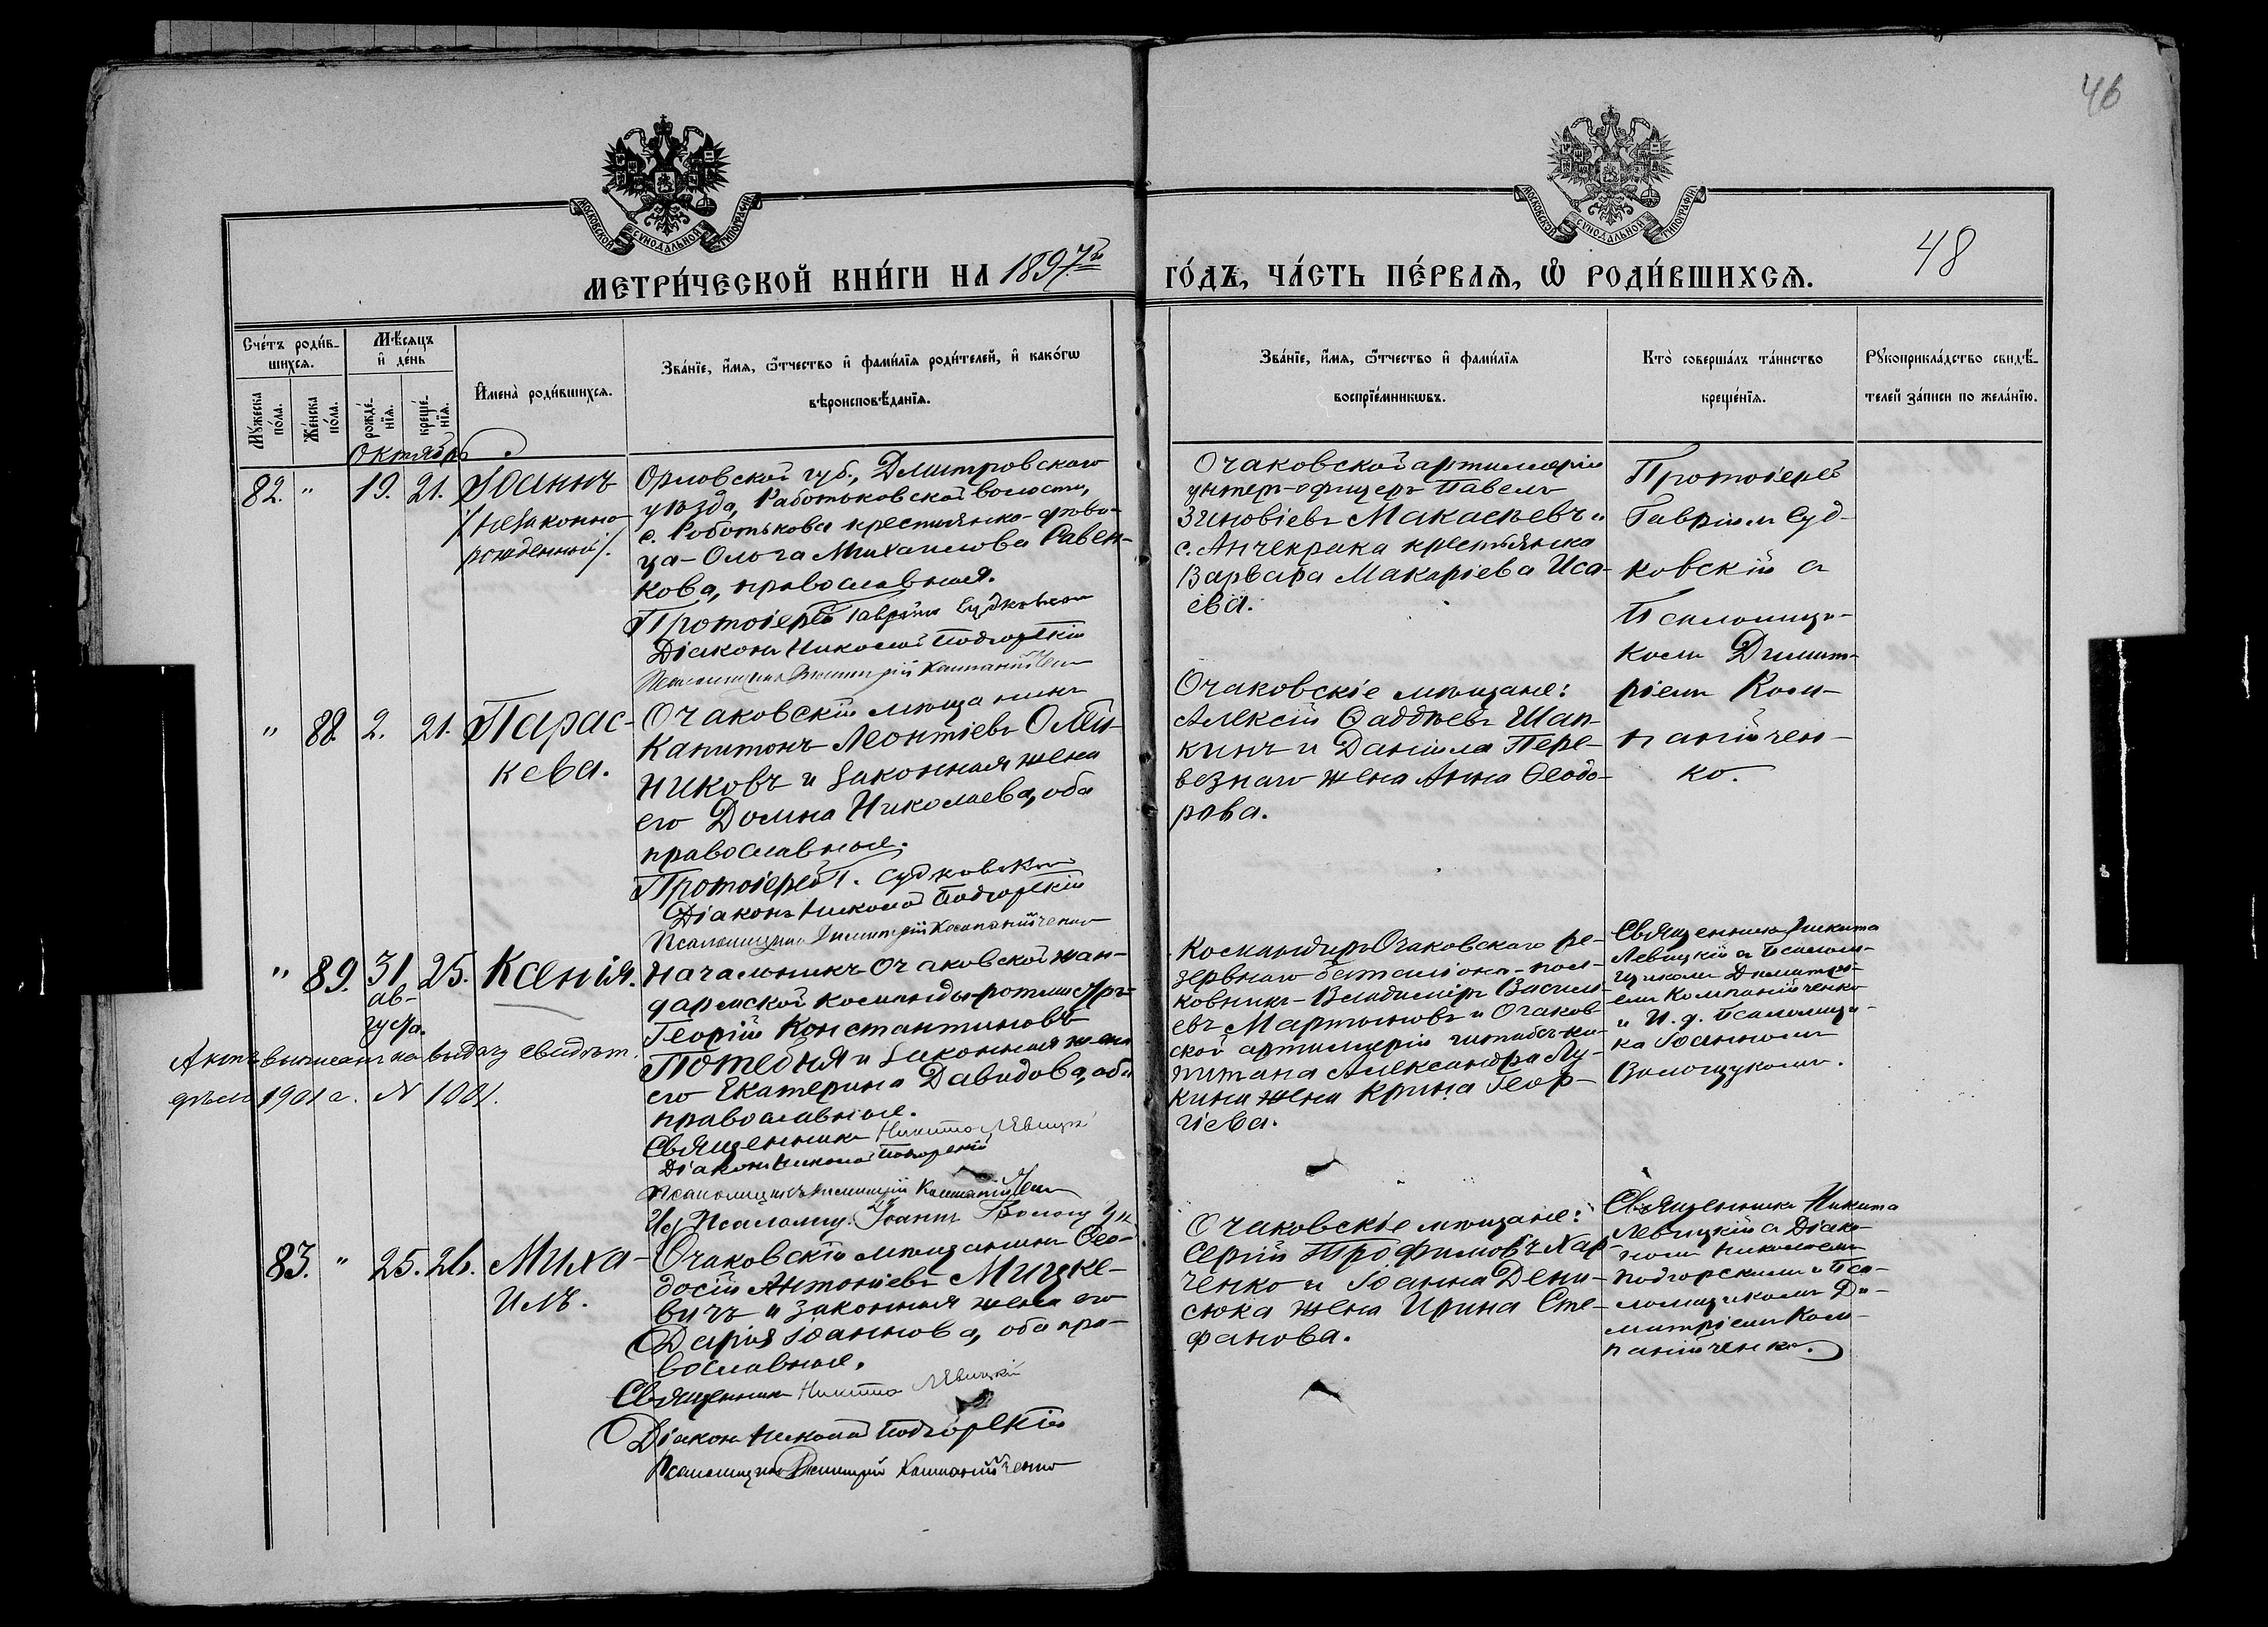 46
МОСКОВСКОЙ СѴНОДАЛЬНОЙ ТИПОГРАФІИ
МОСКОВСКОЙ СѴНОДАЛЬНОЙ ТИПОГРАФІИ
48
МЕТРИ́ЧЕСКОЙ КНИ́ГИ НА 1897й ГО́ДЪ, ЧА́СТЬ ПЕ́РВАѦ, Ѡ РОДИ́ВШИХСѦ.
Сче́тъ роди́в-
шихсѧ.
Мꙋ́жеска по́ла.
Же́нска по́ла.
Мѣ́сѧцъ
и҆ де́нь
рожде́-
нїѧ.
креще́-
нїѧ.
И҆мена̀ роди́вшихсѧ.
Зва́нїе, и҆́мѧ, ѻ҆́тчество и҆ фами́лїѧ роди́телей, и҆ како́гѡ
вѣроисповѣ́данїѧ.
Зва́нїе, и҆́мѧ, ѻ҆́тчество и҆ фами́лїѧ
воспрїе́мникѡвъ.
Кто̀ соверша́лъ та́инство
креще́нїѧ.
Рꙋкоприкла́дство свидѣ́-
телей за́писи по жела́нїю.
Октябрь
82. " 19. 21. Іоаннъ
/незаконно-
рожденный/.
Орловской губ., Дмитровского
уѣзда, Работьковской волости,
с. Роботькова крестьянско-
ца - Ольга Михаилова Равен-
кова, православная.
Протоіерей Гавріилъ Судковскій
Діаконъ Николай Подгорскій
Псаломщикъ Димитрій Компанійченко
Очаковской артиллеріи
унтер-офицеръ Павелъ
Зиновіевъ Макасѣевъ и
с. Анчекрака крестьянка
Варвара Макаріева Иса-
ева.
Протоіерей
Гавріилъ Суд-
ковскій съ
Псаломщи-
комъ Димит-
ріемъ Ком-
панійчен-
ко.
" 88. 2. 21. Парас-
кева.
Очаковскій мѣщанинъ
Капитонъ Леонтіевъ Олей-
никовъ и законная жена
его Домна Николаева, оба
православные.
Протоіерей Г. Судковскій
Діаконъ Николай Подгорскій
Псаломщикъ Димитрій Компанійченко
Очаковскіе мѣщане:
Алексій Ѳаддѣевъ Шап-
кинъ и Даніила Пере-
везнаго жена Анна Ѳеодо-
рова.
" 89. 31 25. Ксенія.
ав-
густа.
Актъ выписанъ на выдачу свидѣт.
дѣло 1901 г. № 1001.
Начальникъ Очаковской жан-
дармской команды ротмистръ
Георгій Константиновъ
Потебня и законная жена
его Екатерина Давидова, оба
православные.
Священникъ Никита Левицкій
Діаконъ Николай Подгорскій
Псаломщикъ Димитрій Компанійченко
Ид Псаломщ. Іоаннъ Волощук
Командиръ Очаковскаго ре-
зервнаго баталіона - пол-
ковникъ - Владиміръ Василь-
евъ Мартыновъ и Очаков-
ской артиллеріи штабсъ-ка-
питана Александра Лу-
кина жена Ирина Геор-
гіева.
Священникъ Никита
Левицкій съ Псалом-
щикомъ Димитрі-
емъ Компанійченко
и И. д. Псаломщи-
ка Іоанномъ
Волощукомъ.
83. " 25. 26. Миха-
илъ.
Очаковскій мѣщанинъ Ѳео-
досій Антоніевъ Мицке-
вичъ и законная жена его
Дарія Іоаннова, оба пра-
вославные.
Священникъ Никита Левицкій
Діаконъ Николай Подгорскій
Псаломщикъ Димитрій Компанійченко
Очаковскіе мѣщане:
Сергій Трофимовъ Хар-
ченко и Іоанна Дени-
сюка жена Ирина Сте-
фанова.
Священникъ Никита
Левицкій съ Діако-
номъ Николаемъ
Подгорскимъ и Пса-
ломщикомъ Ди-
митріемъ Ком-
панійченко.